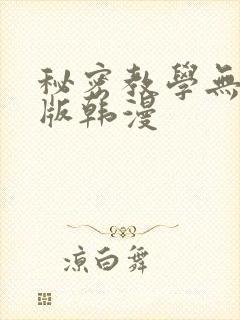 秘密教學無
版韩漫
凉白舞